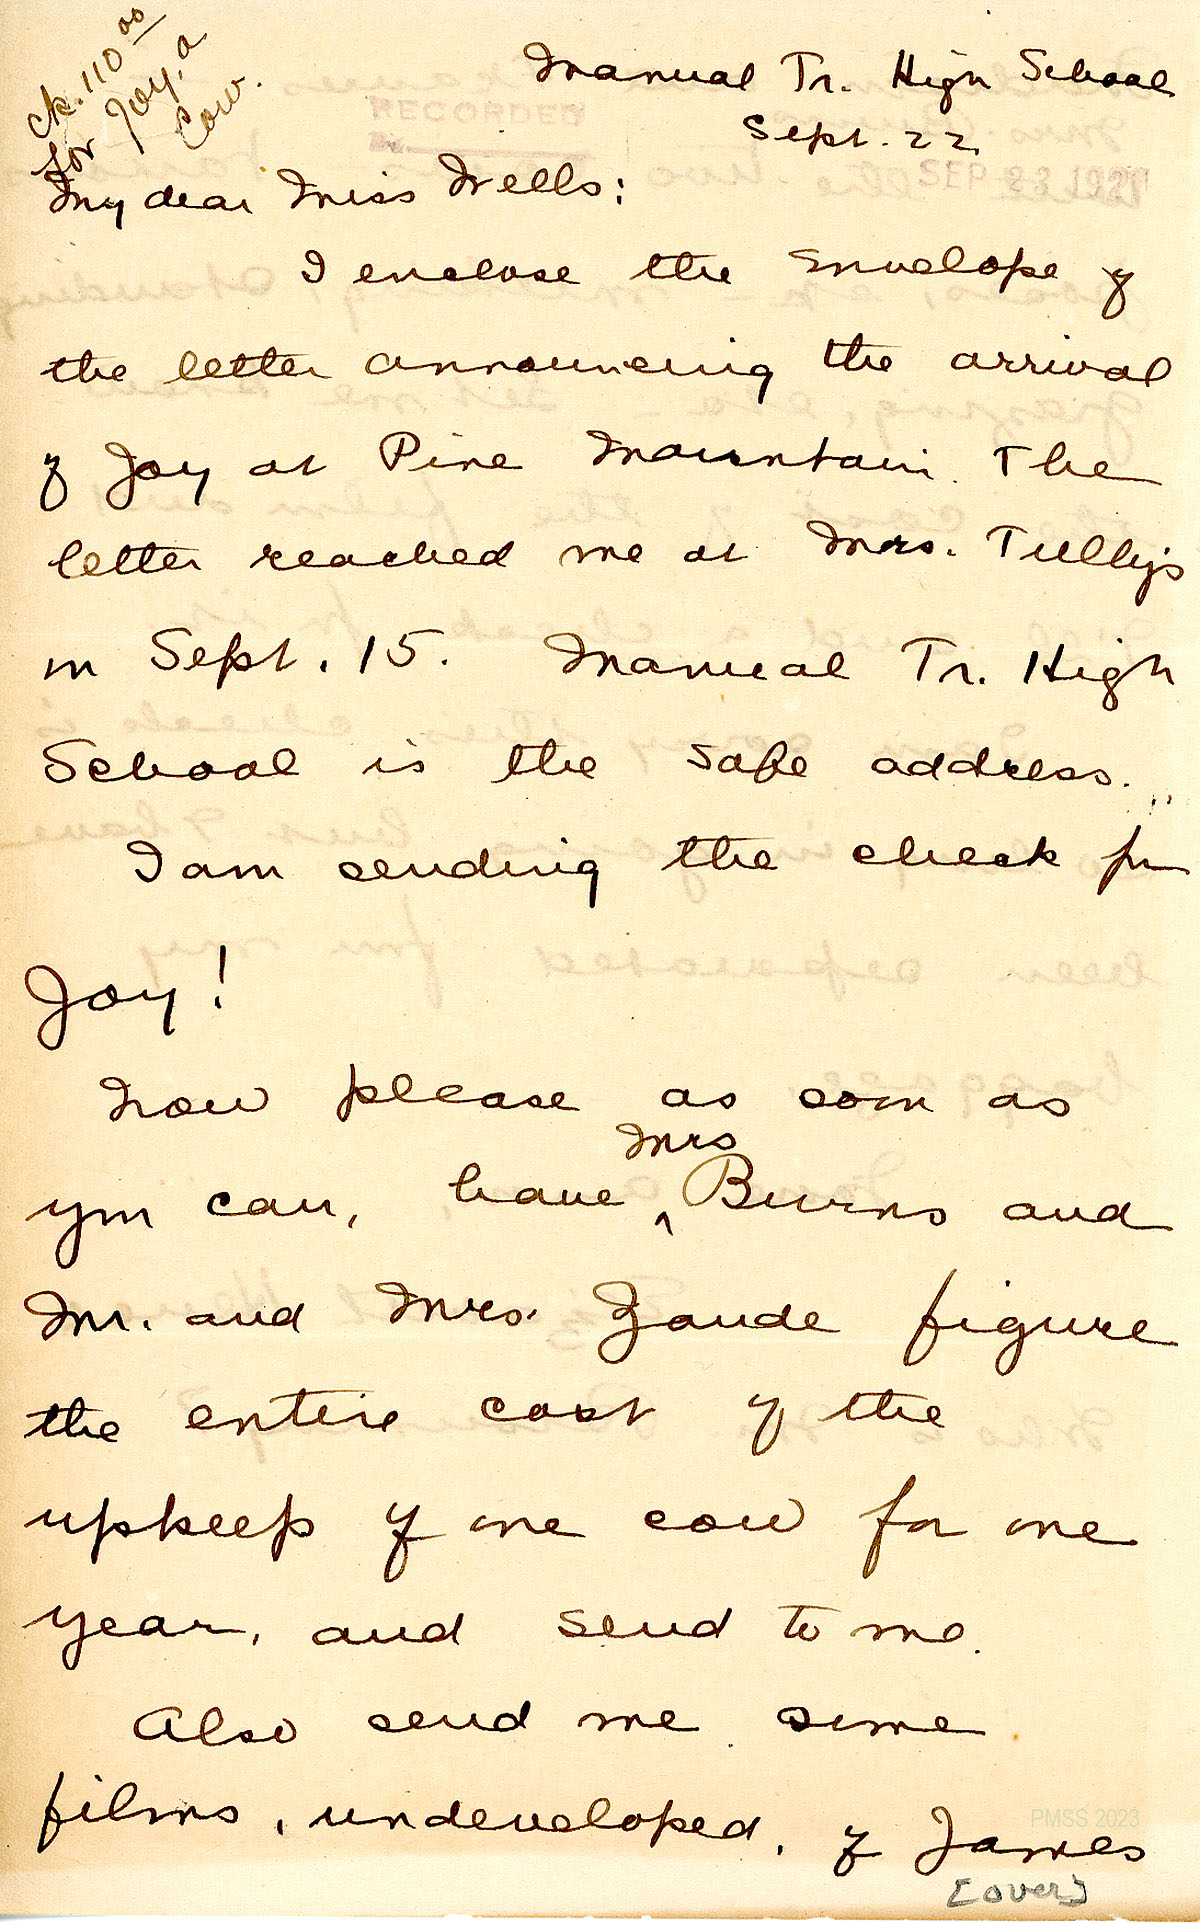 ck. 110 00
for Joy, a
cow.
Manual Tr. High School
RECORDED
Sept. 22
SEP 23 1921
My dear Miss Wells:
I enclose the envelope of
the letter announcing the arrival
of Joy at Pine Mountain. The
letter reached me at Mrs. Tully's
on Sept. 15. Manual Tr. High
School is the safe address.
I am sending the check for
Joy!
Now please as soon as
you can, have Mrs Burns and
Mr. and Mrs. Zande figure
the entire cost of the
upkeep of one cow for one
year, and send to me.
Also send me some
films, undeveloped, of James
[over]
PMSS 2023